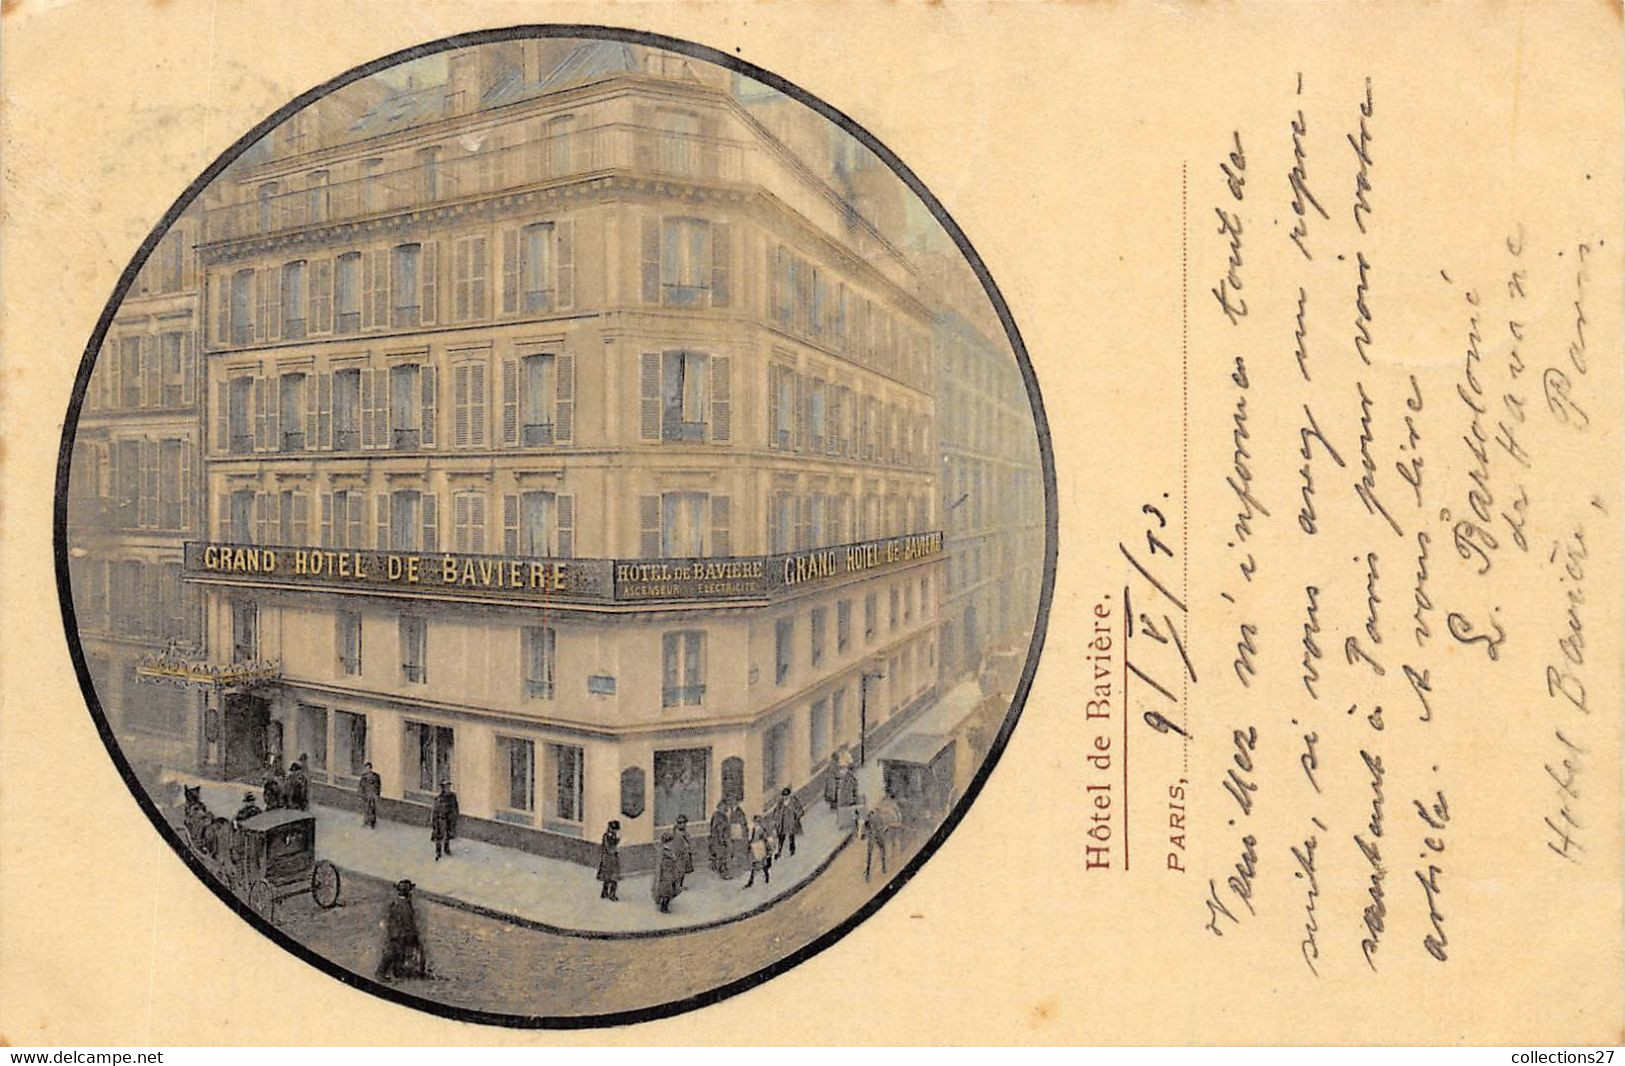 GRAND HOTEL DE BAVIERE
HOTEL DE BAVIERE
ASCENSEUR ÉLECTRICITÉ
GRAND HOTEL DE BAVIERE
Hôtel de Bavière.
PARIS, 9/V/13.
Veuillez m'informer tout de
suite, si vous avez un repre-
sentant à Paris pour voir votre
article. A vous lire
L. Bartolomé
de Havane
Hotel Bavière, Paris.
collections27